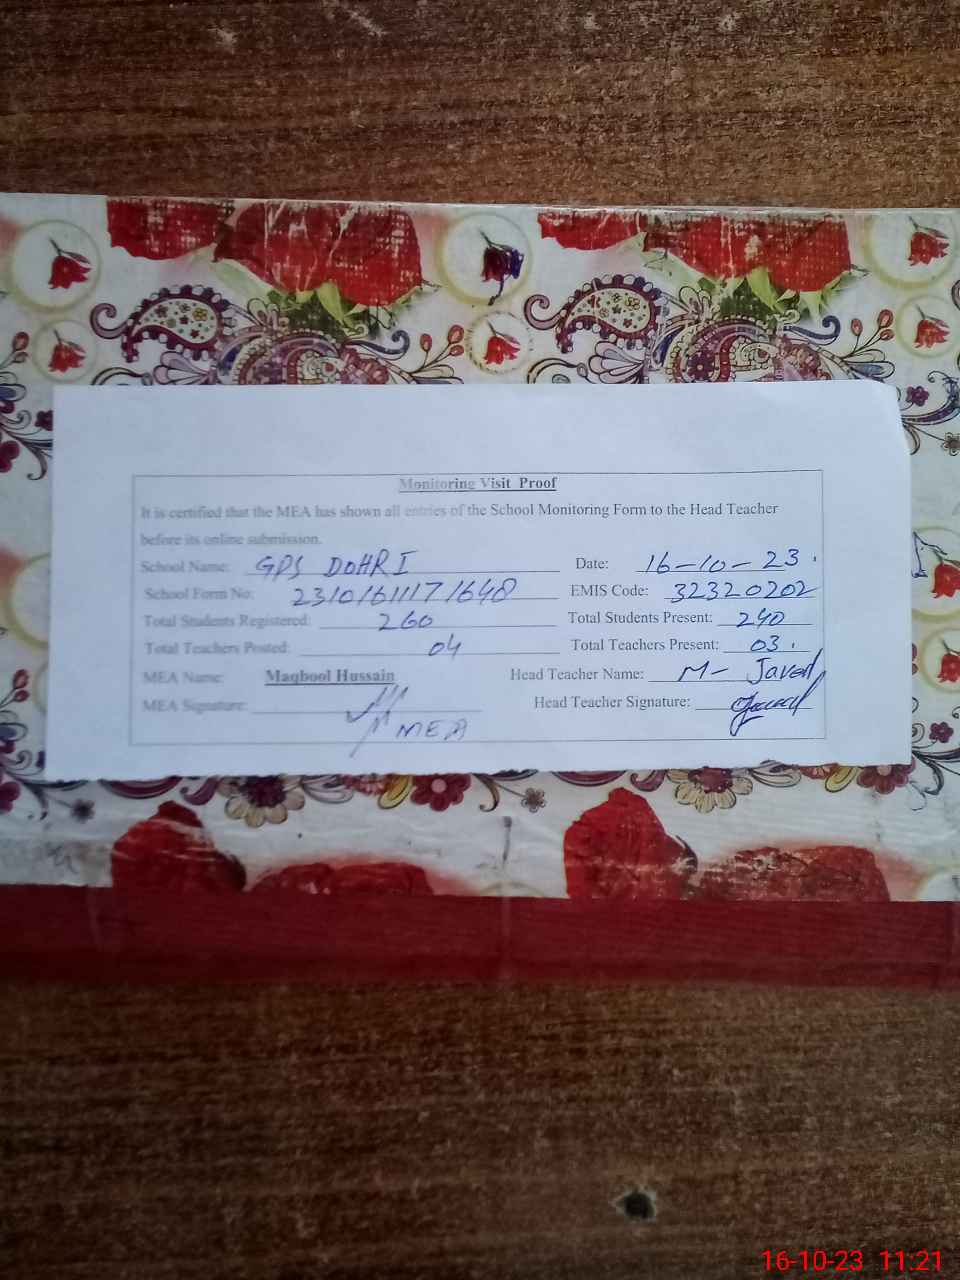 Monitoring Visit Proof
It is certified that the MEA has shown all entries of the School Monitoring Form to the Head Teacher
before its online submission.
School Name: GPS DOHRI Date: 16-10-23.
School Form No: 23101611171648 EMIS Code: 32320202
Total Students Registered: 260 Total Students Present: 240
Total Teachers Posted: 04 Total Teachers Present: 03.
MEA Name: Maqbool Hussain Head Teacher Name: M- Javed
MEA Signature: MEA Head Teacher Signature:
16-10-23 11:21